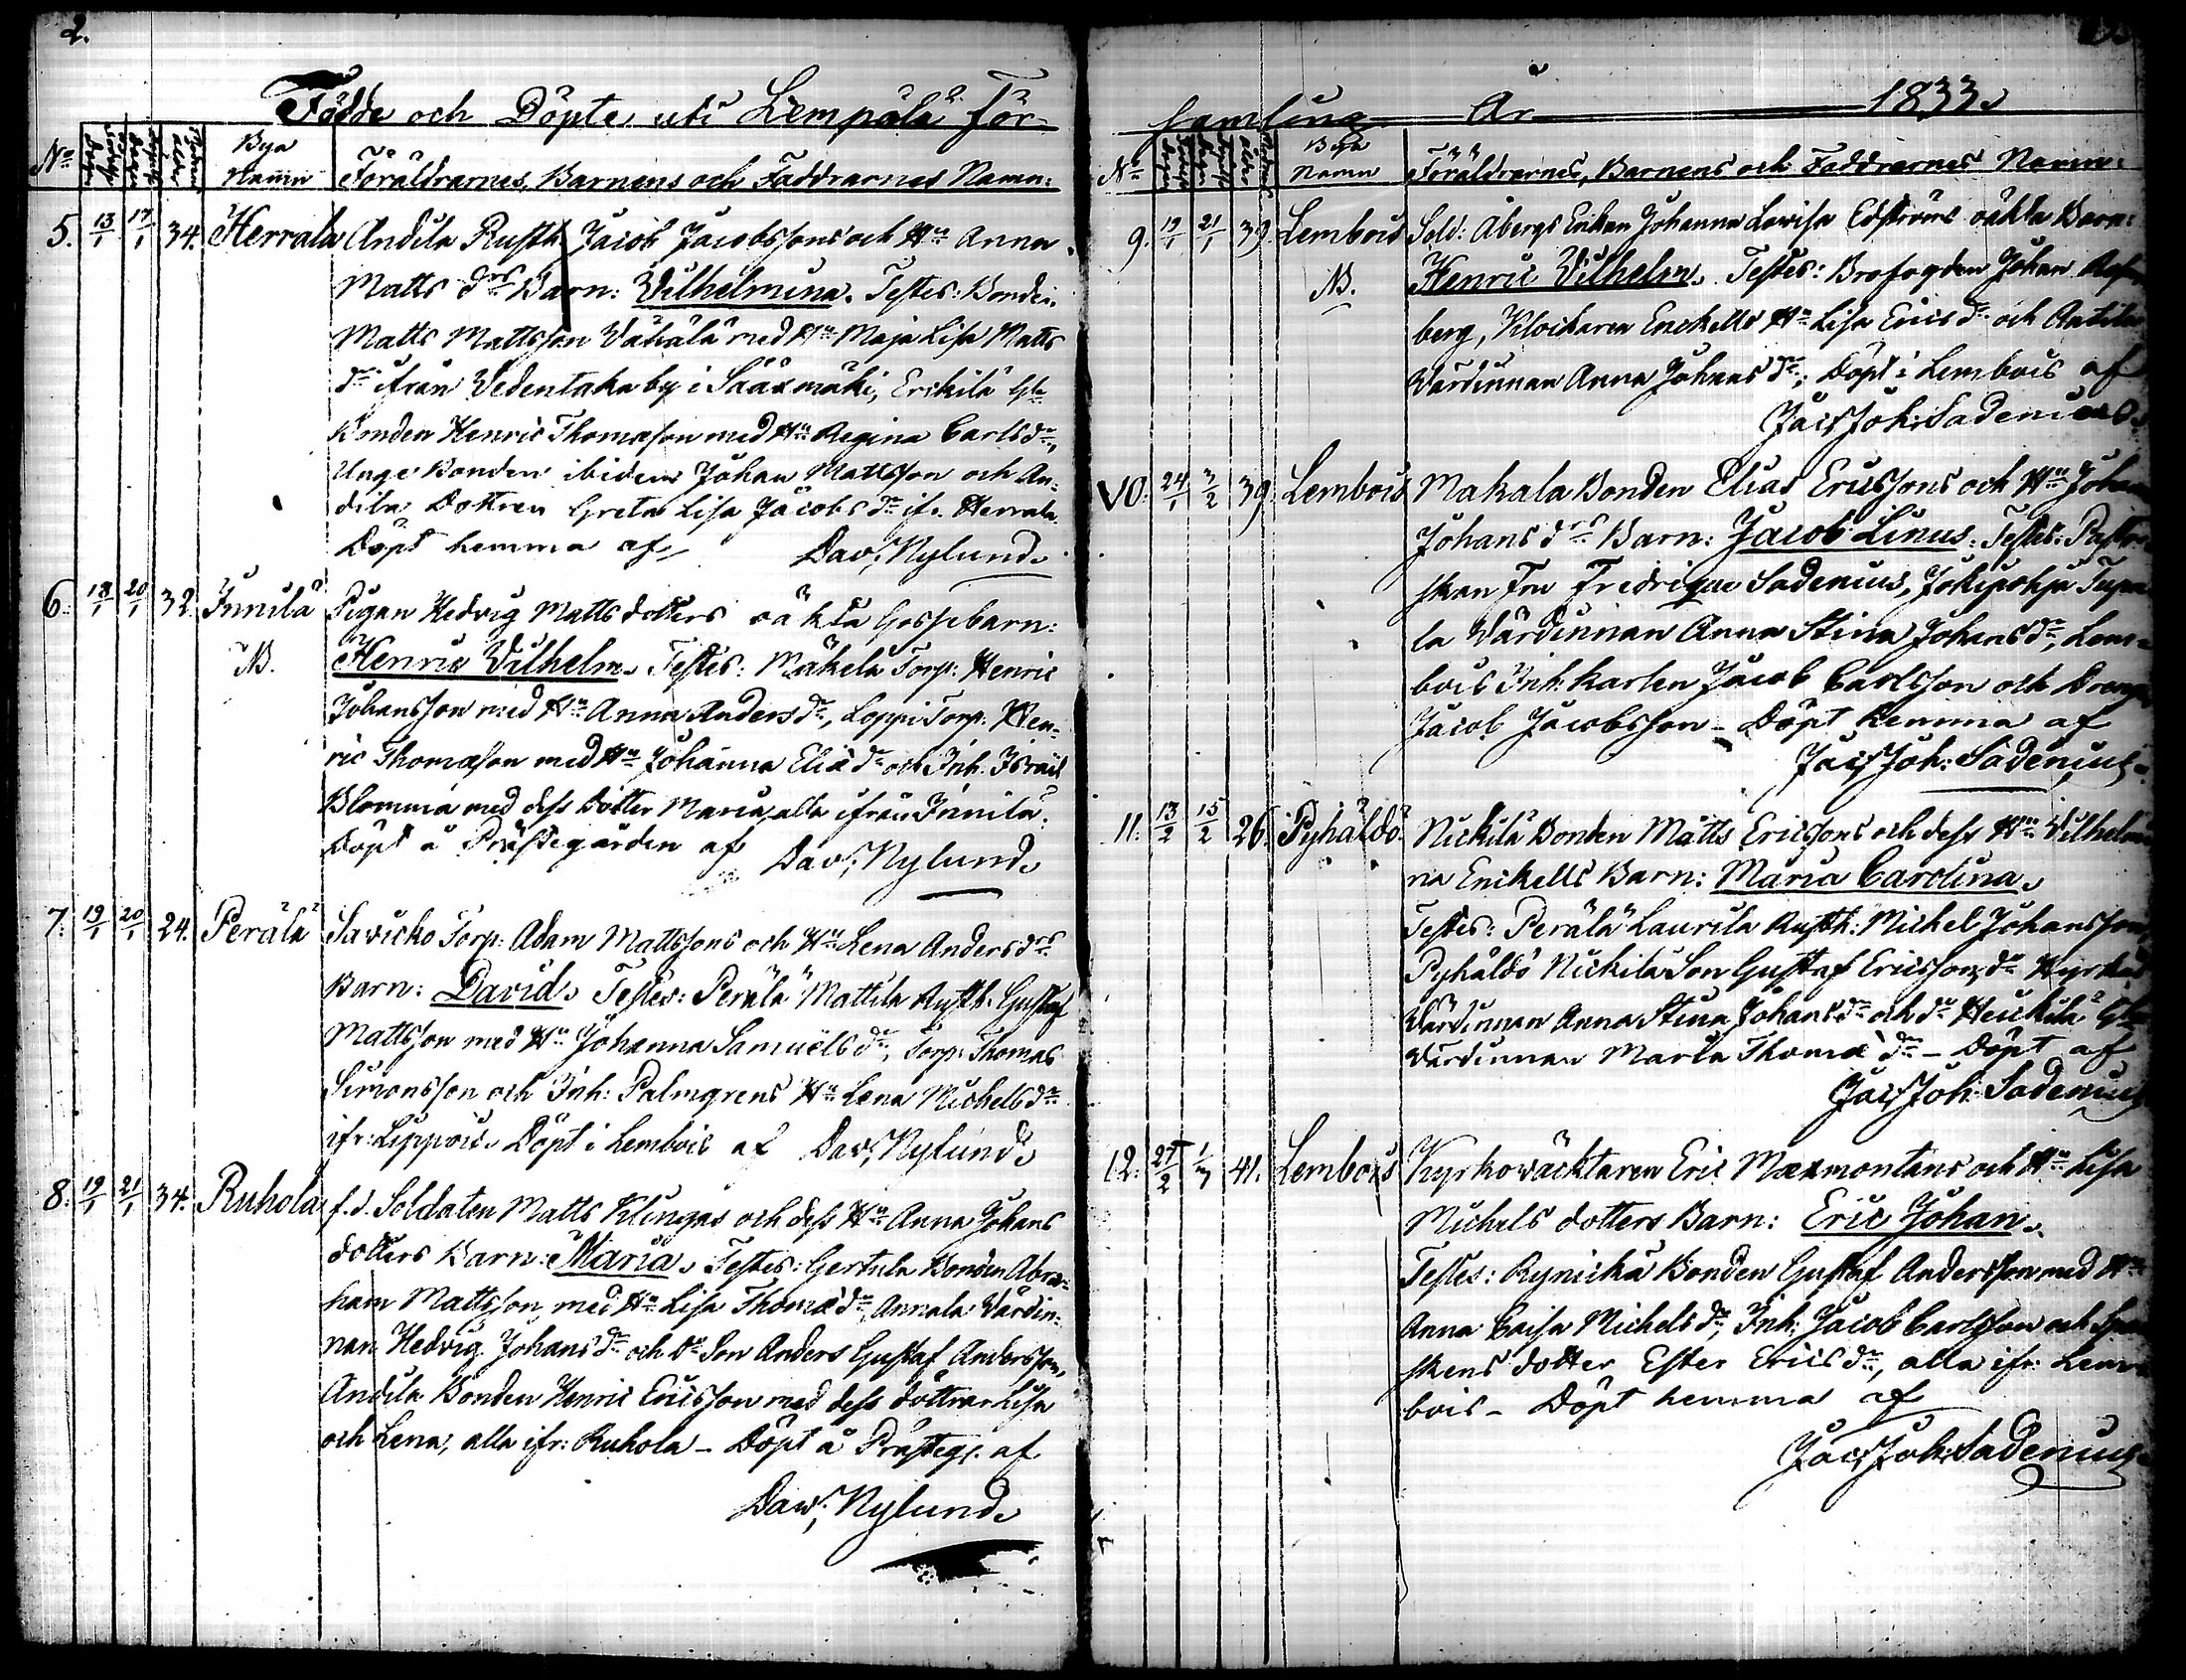 2.
Födde och Döpte uti Lempälä För-
No
Bya
Namn
Föräldrarnes, Barnens och Faddrarnes Namn:
5. 13/1 17/1 34. Herrala Andila Rusth. Jacob Jacobssons och Hu Anna
Matts drs Barn: Vilhelmina. Testes: Bonden
Matts Mattsson Wähälä med Hu Maja Lisa Matts
dr ifrån Vedentaka by i Sääxmäki, Erikilä Gle
Bonden Henric Thomasson med Hu Regina Carlsdr,
Unge Bonden ibidem Johan Mattsson och An-
dila Dottren Greta Lisa Jacobs dr ifr. Herrala.
Döpt hemma af Dav: Nylund.
6. 18/1 20/1 32. Innilä Pigan Hedvig Matts dotters oäkta Gossebarn:
NB. Henric Vilhelm. Testes: Mäkelä Torp: Henric
Johansson med Hu Anna Anders dr, Loppi Torp: Hen-
ric Thomasson med Hu Johanna Eliæ dr och Inh: Israel
Blomma med dess Dotter Maria, alla ifrån Innilä.
Döpt å Prästegården af Dav: Nylund.
7. 19/1 20/1 24. Perälä Savicko Torp: Adam Mattssons och Hu Lena Anders drs
Barn: David. Testes: Perälä Mattila Rusth: Gustaf
Mattsson med Hu Johanna Samuels dr, Torp: Thomas
Simonsson och Inh: Palmgrens Hu Lena Michels dr
ifr: Lippois. Döpt i Lembois af Dav: Nylund.
8. 19/1 21/1 34. Ruhola f.d. Soldaten Matts Klingas och dess Hu Anna Johans
dotters Barn: Maria. Testes: Gertula Bonden Abra-
ham Mattsson med Hu Lisa Thomæ dr, Annala Värdin-
nan Hedvig Johans dr och do Son Anders Gustaf Andersson,
Andila Bonden Henric Ericsson med dess döttrar Lisa
och Lena, alla ifr: Ruhola – Döpt å Prästeg. af
Dav: Nylund.
samling År 1833.
No
Bya
Namn
Föräldrarnes, Barnens och Faddrarnes Namn:
9. 19/1 21/1 39. Lembois Sold: Åbergs Enkan Johanna Lovisa Edströms oäkta Barn:
NB. Henric Vilhelm. Testes: Brofogden Johan
berg, Klockaren Enckells Hu Lisa Erics dr och Antila
Värdinnan Anna Johans dr; Döpt i Lembois af
Jac: Joh: Sadenius.
10. 24/1 3/2 39. Lembois Makala Bonden Elias Ericssons och Hu Johan
Johans drs Barn: Jacob Linus. Testes: Pastor
skan Fru Fredrique Sadenius, Jokipohja Tupa
la Värdinnan Anna Stina Johans dr, Lem-
bois Inh: Karlen Jacob Carlsson och Dreng
Jacob Jacobsson – Döpt hemma af
Jac: Joh: Sadenius.
11. 13/2 15/2 26. Pyhäldö Nickilä Bonden Matts Ericssons och dess Hu Vilhelmi
na Enckells Barn: Maria Carolina.
Testes: Perälä Laurila Rusth: Michel Johansson,
Pyhäldö Nickilä Son Gustaf Ericsson, do
Värdinnan Anna Stina Johans dr och do Heickilä Gla
Värdinnan Maria Thomæ dr – Döpt af
Jac: Joh: Sadenius
12. 27/2 1/3 41. Lembois Kyrkowäcktaren Eric Maxmontans och Hu Lisa
Michels dotters Barn: Eric Johan.
Testes: Rynickä Bonden Gustaf Andersson med Hu
Anna Caisa Michels dr, Inh: Jacob Carlsson och
skens dotter Ester Erics dr, alla ifr: Lem
bois – Döpt hemma af
Jac: Joh: Sadenius.